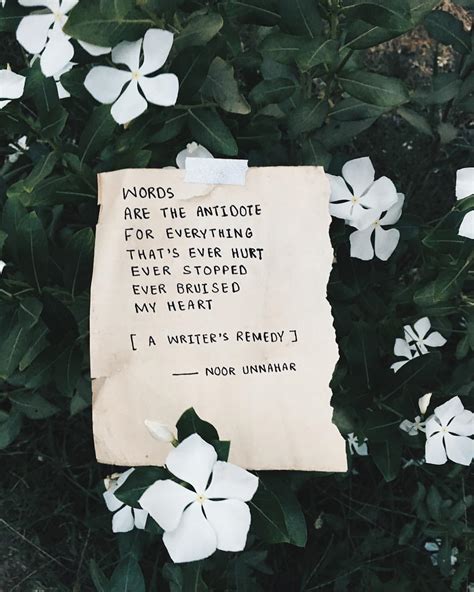 WORDS
ARE THE ANTIDOTE
FOR EVERYTHING
THAT'S EVER HURT
EVER STOPPED
EVER BRUISED
MY HEART
[ A WRITER'S REMEDY ]
— NOOR UNNAHAR